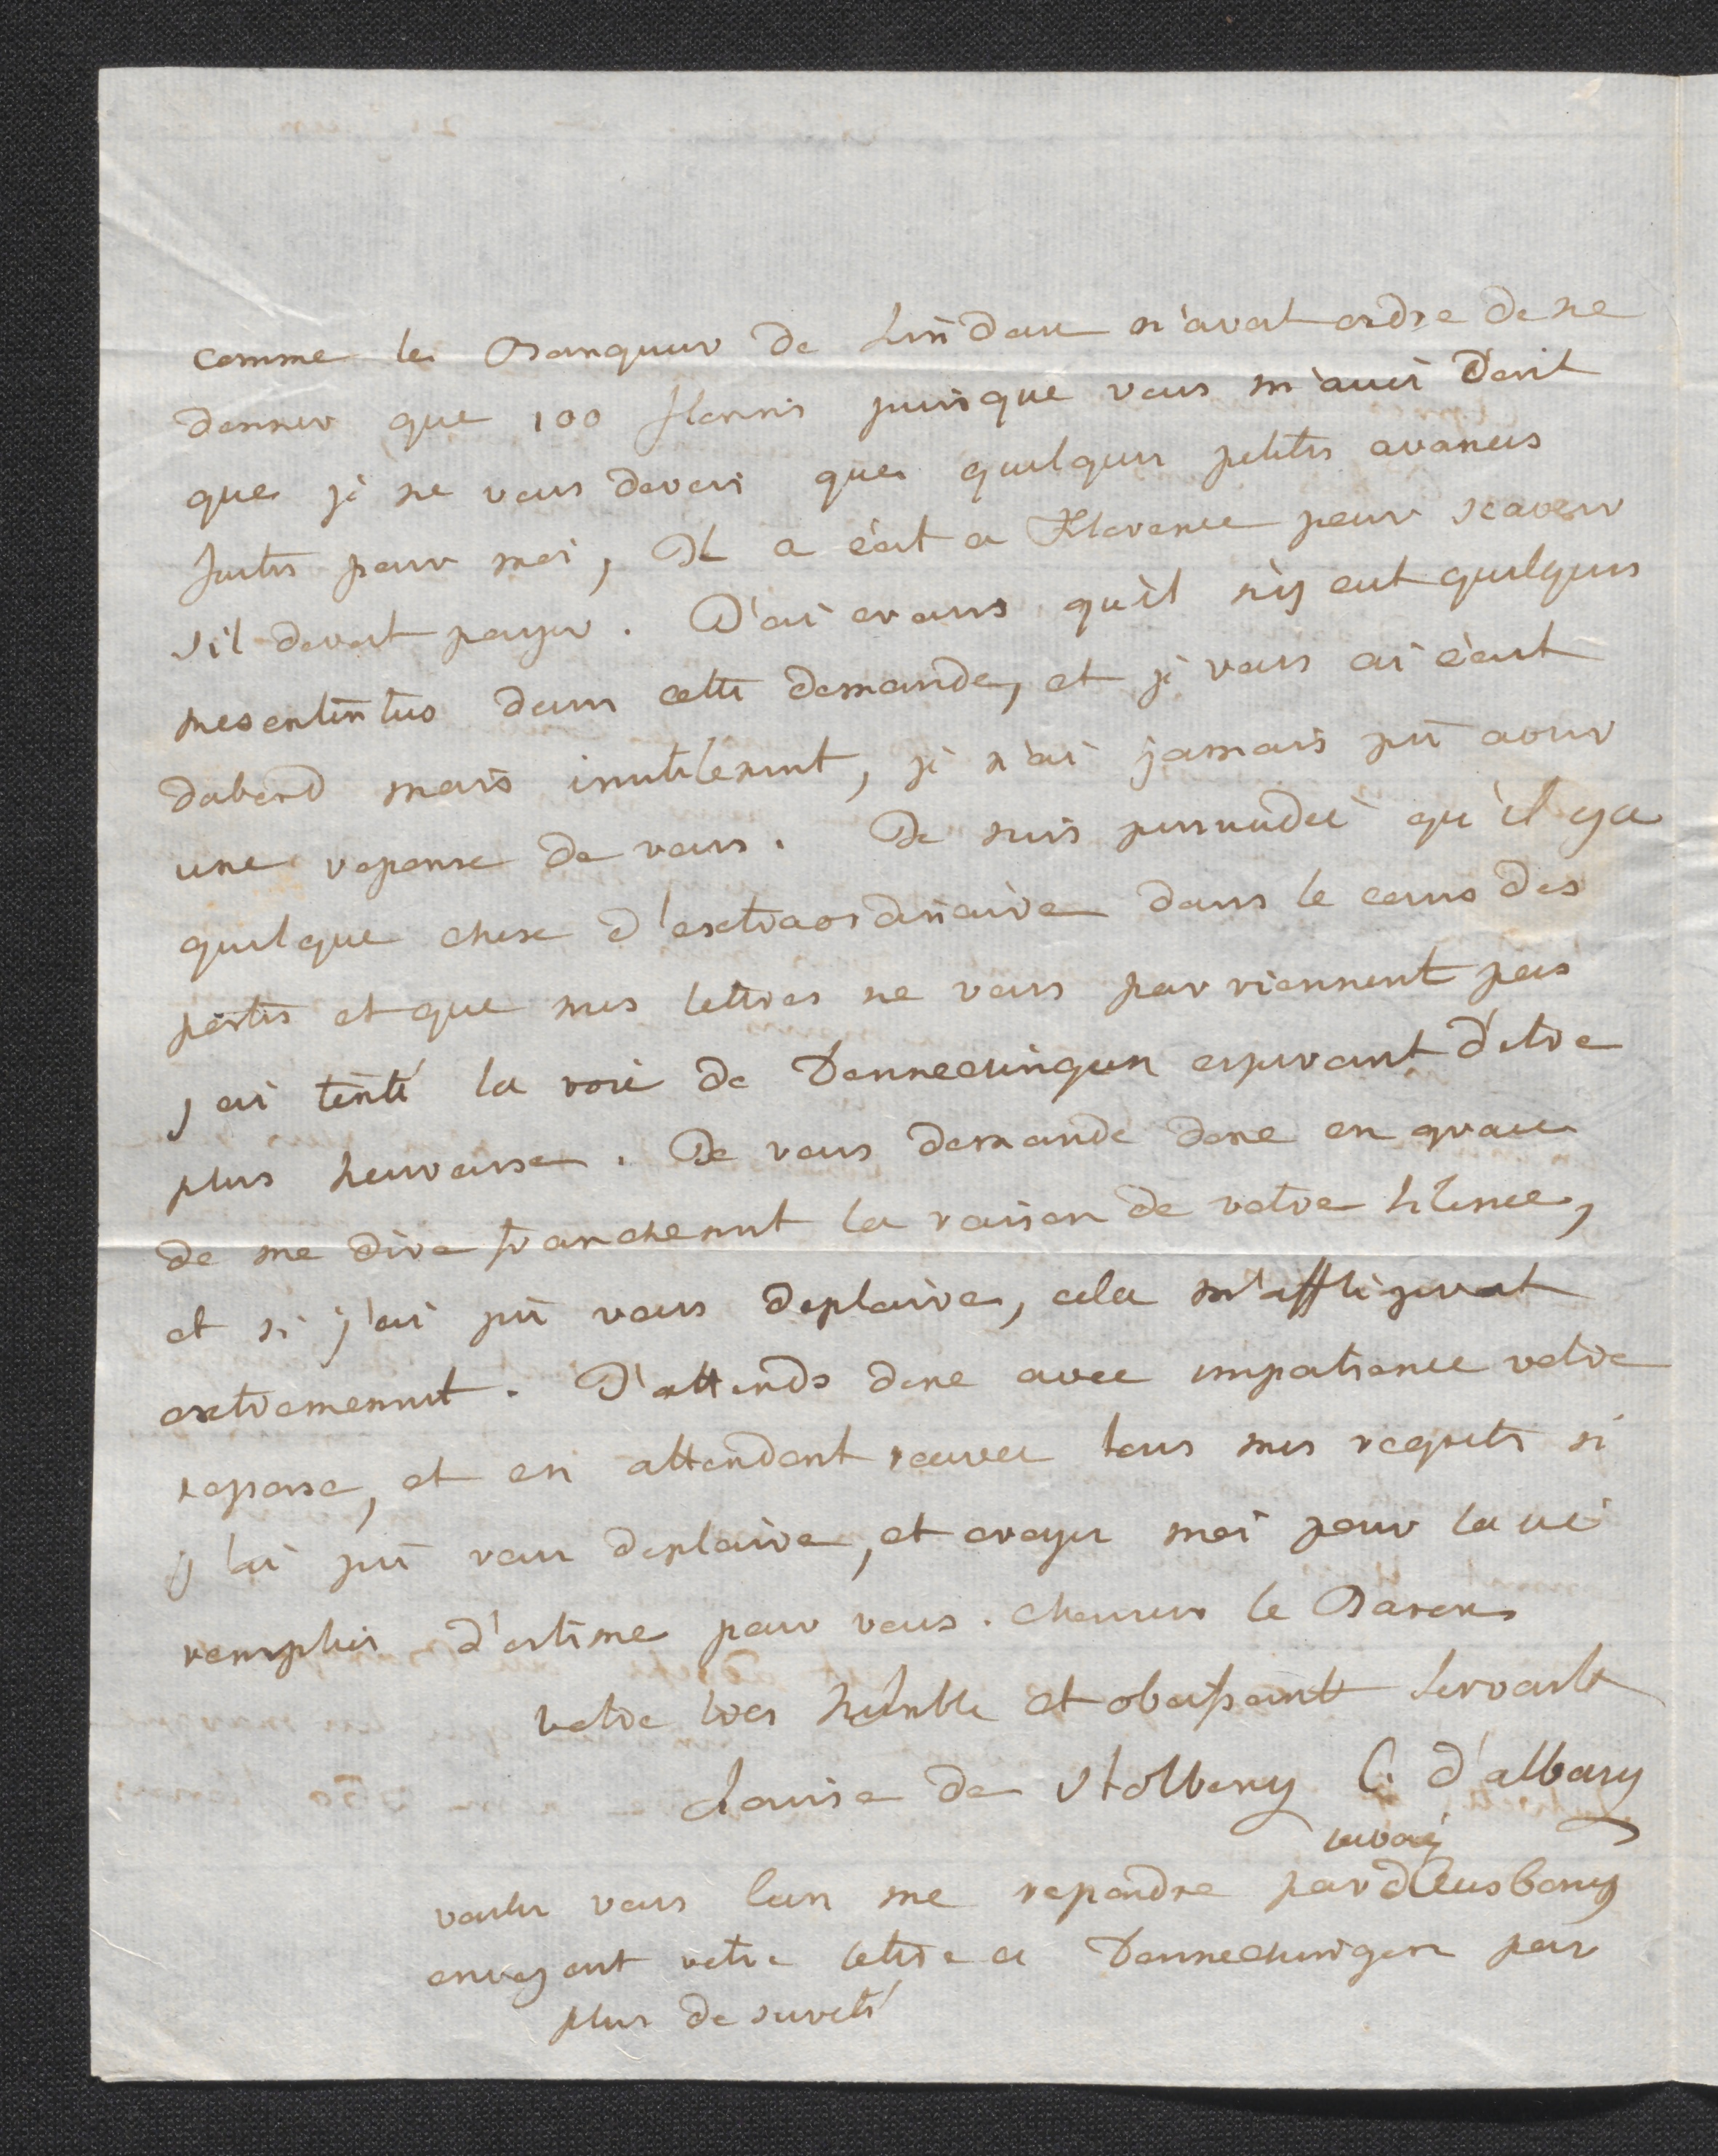 comme le Banquier de Lindau n'avoit ordre de ne
donner que 100 florins puisque vous m'aviés Ecrit
que je ne vous devois que quelques petites avances
faites pour moi, Il a écrit a Florence pour scavoir
s'il devoit payer. J'ai crains qu'il n'y eut quelques
mesentintus dans cette demande, et je vous ai écrit
dabord mais inutilement, je n'ai jamais pû avoir
une reponse de vous. Je suis persuadée qu'il ya
quelque chose d'extraordinaire dans le cours des
postes et que mes lettres ne vous parviennent pas
j'ai tenté la voie de Donneschingen esperant d'etre
plus heureuse. Je vous demande donc en grace
de me dire franchement la raison de votre silence,
et si j'ai pû vous deplaire, cela m'affligeroit
extremement. J'attends donc avec impatience votre
reponse, et en attendant recevez tous mes regrets si
j'ai pû vous deplaire, et croyez moi pour la vie
remplie d'estime pour vous. Monsieur le Baron
votre tres humble et obeissante servante
Louise de Stolberg C. d'albany
voulez vous bien me repondre par Ausbourg
envoyant votre lettre a Donneschingen par
plus de sureté